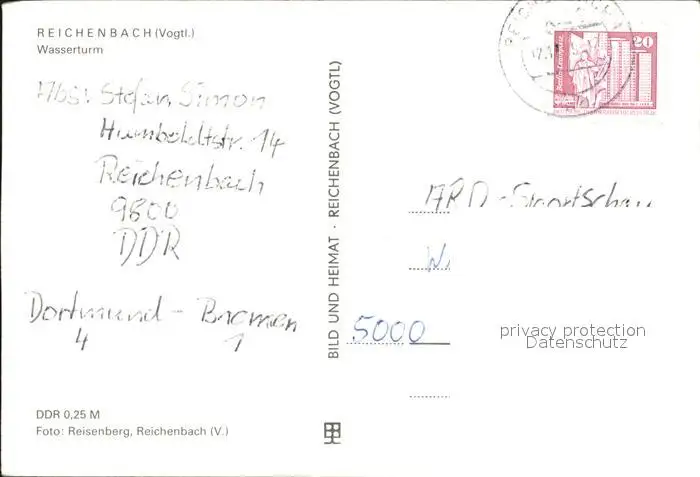 REICHENBACH (Vogtl.)
Wasserturm
Abs: Stefan Simon
Humboldtstr. 14
Reichenbach
9800
DDR
Dortmund - Bremen
4 1
DDR 0,25 M
Foto: Reisenberg, Reichenbach (V.)
BILD UND HEIMAT · REICHENBACH (VOGTL)
20
Berlin-Leninplatz
ARD-Sportschau
5000
privacy protection
Datenschutz